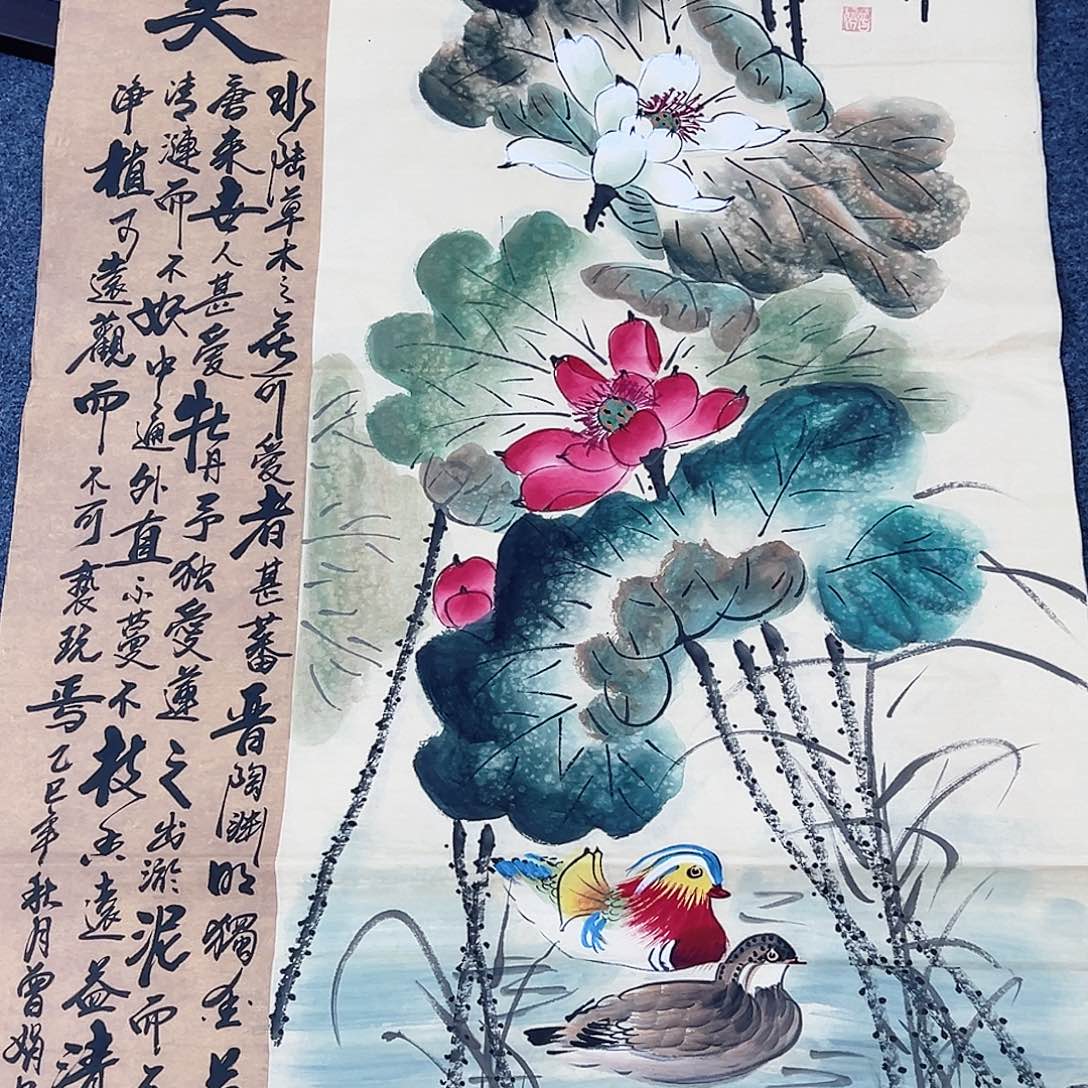 水陆草木之花可愛者甚蕃晋陶渊明獨
唐来世人甚愛牡丹予独愛蓮之出淤泥而
清漣而不妖中通外直不蔓不枝香遠益清
净植可遠觀而不可褻玩焉乙巳年秋月曾娟